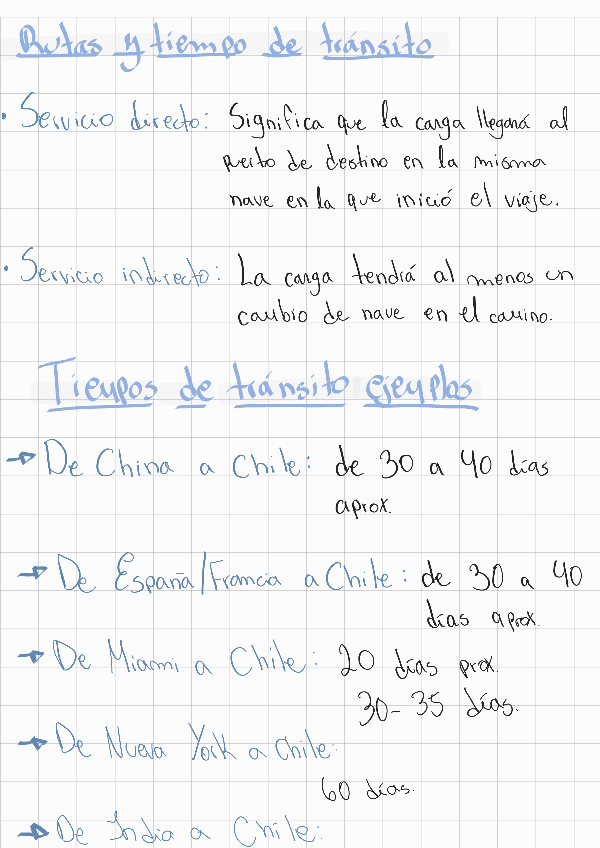 Rutas y tiempo de tránsito
• Servicio directo: Significa que la carga llegará al
puerto de destino en la misma
nave en la que inició el viaje.
• Servicio indirecto: La carga tendrá al menos un
cambio de nave en el camino.
Tiempos de tránsito ejemplos
→ De China a Chile: de 30 a 40 días
aprox.
→ De España/Francia a Chile: de 30 a 40
días aprox.
→ De Miami a Chile: 20 días prox.
30-35 días.
→ De Nueva York a Chile:
60 días.
→ De India a Chile: